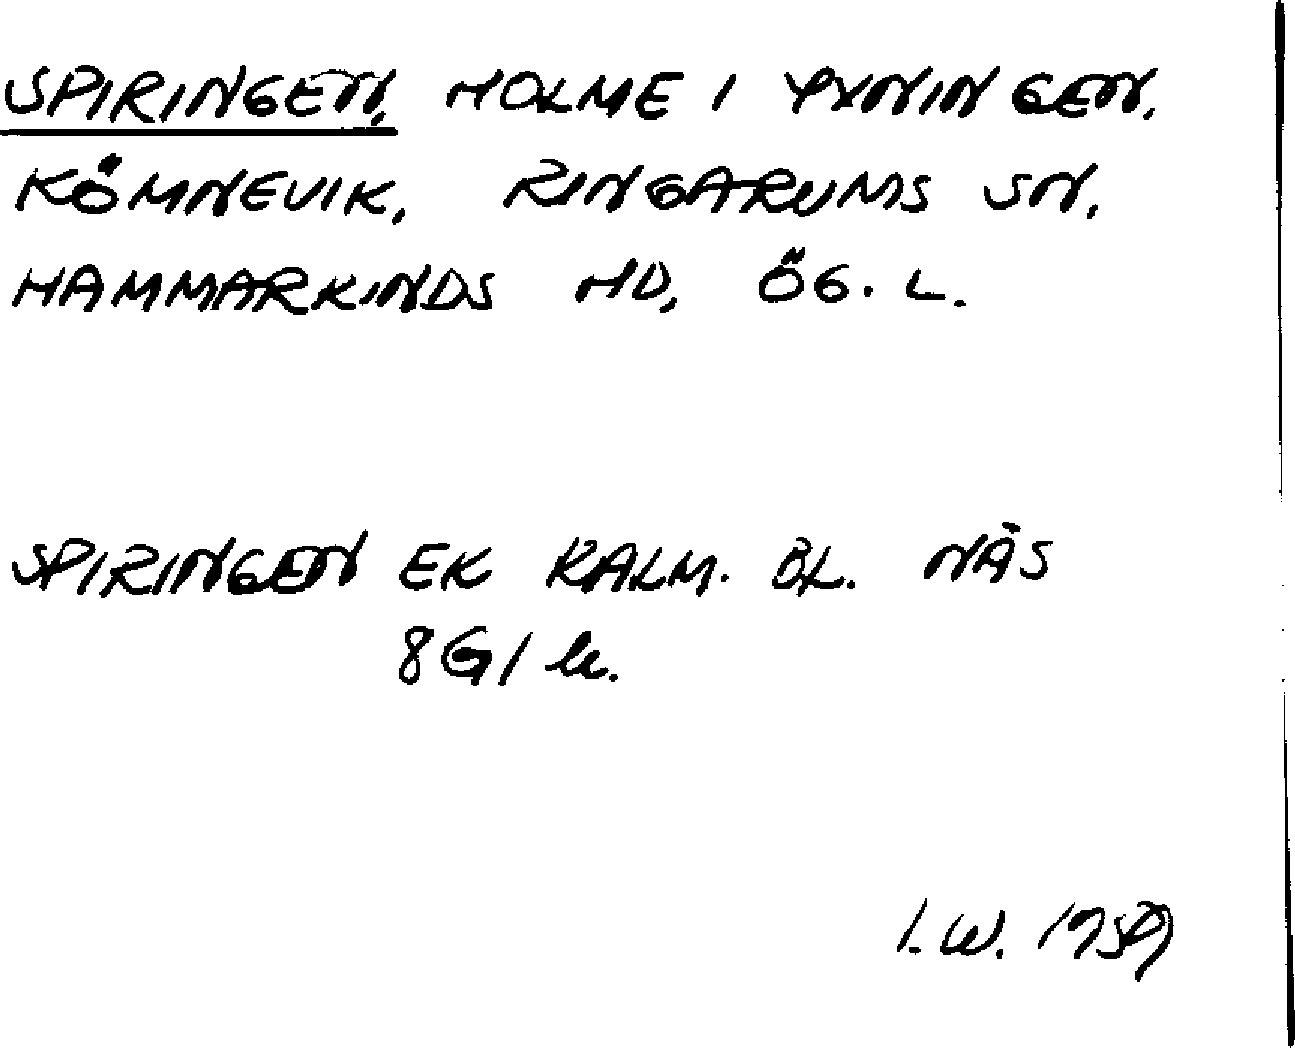 SPIRINGEN, HOLME I YXNINGEN,
KÖMNEVIK, RINGARUMS SN,
HAMMARKINDS HD, ÖG. L.
SPIRINGEN EK KALM. BL. NÄS
8G1
I.W. 1959